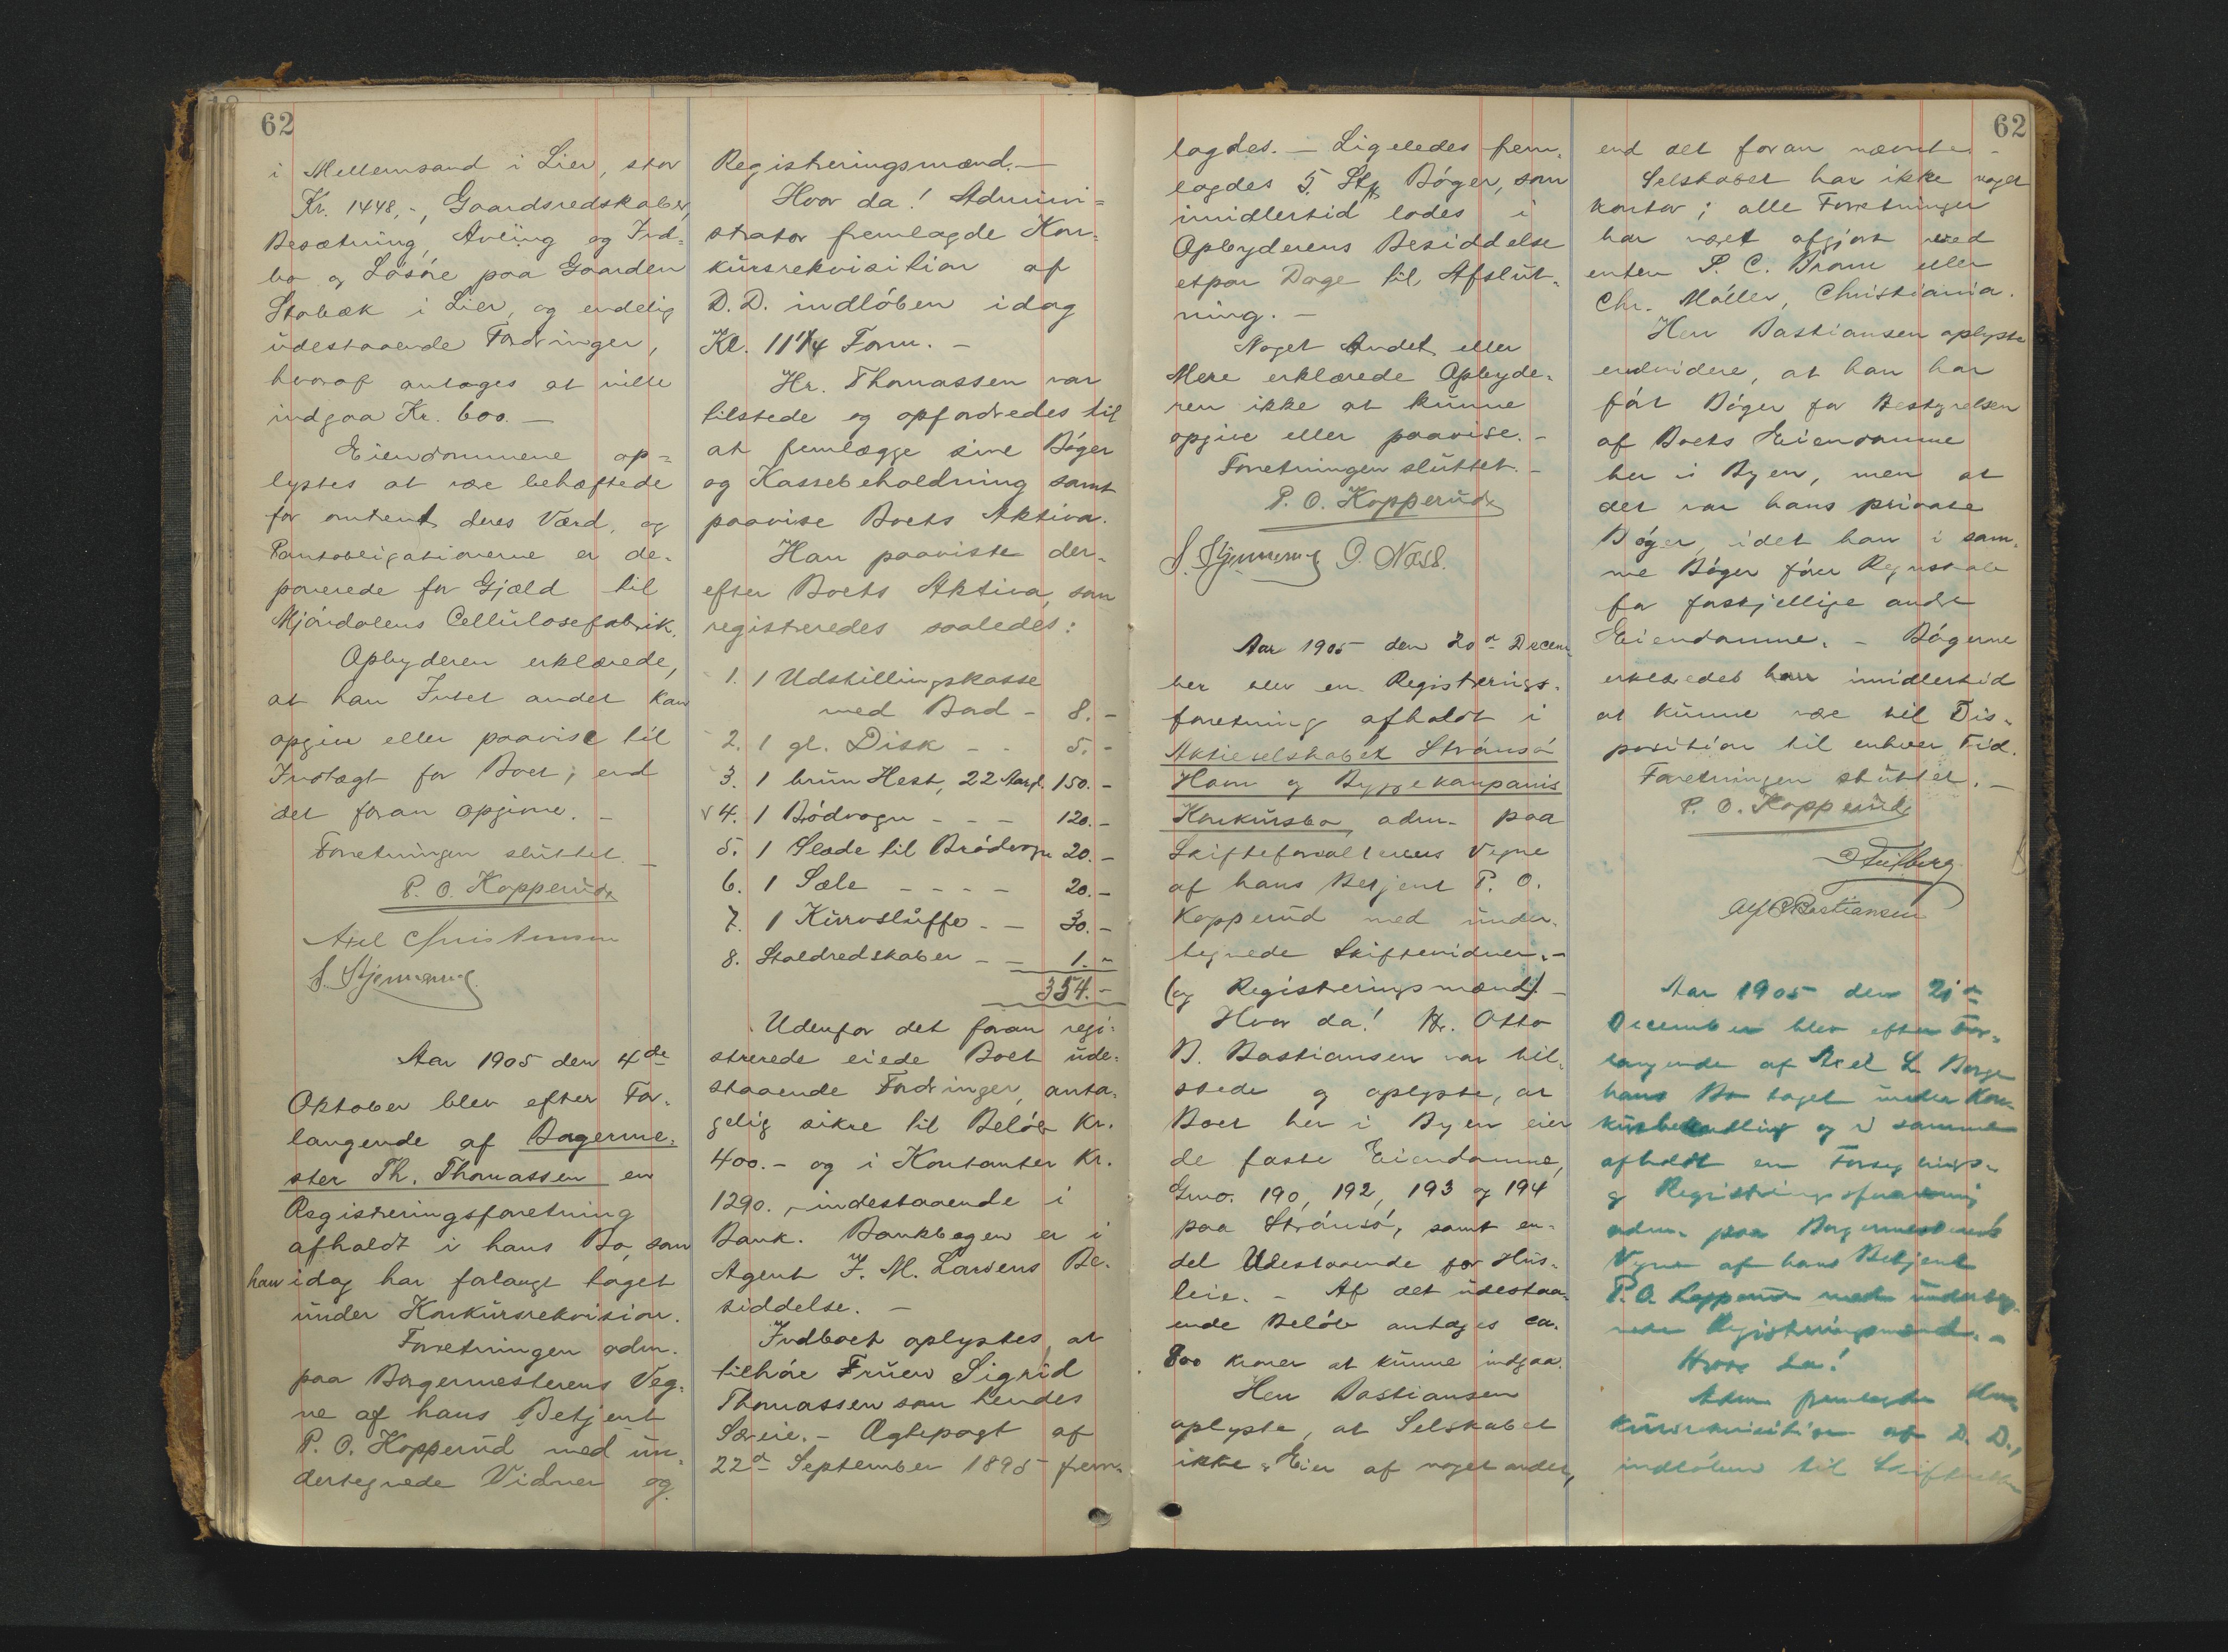 62
i Mellemsand i Lier, stor
Kr. 1448,-, Gaardsredskaber,
Besætning, Avling og Ind-
bo og Løsøre paa Gaarden
Stabæk i Lier, og endelig
udestaaende Fordringer,
hvoraf antages at ville
indgaa Kr. 600.—
Eiendommene op-
lystes at være behæftede
for omtrent deres Værd, og
Pantobligationerne er de-
ponerede for Gjæld til
Mjøndalens Cellulosefabrik.
Opbyderen erklærede,
at han Intet andet kan
opgive eller paavise til
Indtægt for Boet, end
det foran opgivne. —
Forretningen sluttet. —
P. O. Kopperud
Axel Christensen
Aar 1905 den 4de
Oktober blev efter For-
langende af Bagerme-
ster Th. Thomassen en
Registreringsforretning
afholdt i hans Bo, som
han idag har forlangt taget
under Konkursrekvision.
Forretningen adm.
paa Borgermesterens Veg-
ne af hans Betjent
P. O. Kopperud med un-
dertegnede Vidner og
Registreringsmænd.—
Hvor da! Admini-
strator fremlagde Kon-
kursrekvisition af
D. D. indløben idag
Kl. 11 1/4 Form. —
Hr. Thomassen var
tilstede og opfordredes til
at fremlægge sine Bøger
og Kassebeholdning samt
paavise Boets Aktiva.
Han paaviste der-
efter Boets Aktiva, som
registreredes saaledes:
1. 1 Udstillingskasse
med Bord - 8.-
2. 1 gl. Disk - - 5.-
3. 1 brun Hest, 22 Aar gl. 150.-
√ 4. 1 Brødvogn - - - 120.-
5. 1 Slæde til Brødvogn 20.-
6. 1 Sæle - - - - 20.-
7. 1 Kurvsluffe - - 30.-
8. Staldredskaber - - 1.-
354.-
Udenfor det foran regi-
strerede eiede Boet ude-
staaende Fordringer, anta-
gelig sikre til Beløb Kr.
400.- og i Kontanter Kr.
1290.-, indestaaende i
Bank. Bankbogen er i
Agent J. M. Larsens Be-
siddelse. —
Indboet oplystes at
tilhøre Fruen Sigrid
Thomassen som hendes
Særeie.- Ægtepagt af
22d September 1895 frem-
62
lagdes. — Ligeledes frem-
lagdes 5 Stk Bøger, som
imidlertid lodes i
Opbyderens Besiddelse
etpar Dage til Afslut-
ning. —
Noget Andet eller
Mere erklærede Opbyde-
ren ikke at kunne
opgive eller paavise.-
Forretningen sluttet.-
P. O. Kopperud
O. Næss.
Aar 1905 den 20d Decem-
ber blev en Registrerings-
forretning afholdt i
Aktieselskabet Strømsø
Havn og Byggekompanis
Konkursbo, adm. paa
Skifteforvalterens Vegne
af hans Betjent P. O.
Kopperud med under-
tegnede Skiftevidner.-
(og Registreringsmænd) -
Hvor da! Hr. Otto
B. Bastiansen var til-
stede og oplyste, at
Boet her i Byen eier
de faste Eiendomme,
Gno. 190, 192, 193 og 194
paa Strømsø, samt en-
del Udestaaende for Hus-
leie. - Af det udestaa-
ende Beløb antages ca.
800 kroner at kunne indgaa.
Herr Bastiansen
oplyste, at Selskabet
ikke Eier af noget andet,
end det foran nævnte. -
Selskabet har ikke noget
kontor; alle Forretninger
har været afgjort ved
enten P. C. Brun eller
Chr. Møller, Christiania.
Herr Bastiansen oplyste
endvidere, at han har
ført Bøger for Bestyrelsen
af Boets Eiendomme
her i Byen, men at
det var hans private
Bøger, idet han i sam-
me Bøger fører Regnskab
for forskjellige andre
Eiendomme. - Bøgerne
erklæredes han imidlertid
at kunne være til Dis-
position til enhver Tid.
Forretningen sluttet. —
P. O. Kopperud
Bastiansen
Aar 1905 den 21de
December blev efter For-
langende af Axel L. Borge
hans Bo taget under Kon-
kursbehandling og i samme
afholdt en Forseglings-
og Registreringsforretning
adm. paa Borgermesterens
Vegne af hans Betjent
P. O. Kopperud med underteg-
nede Registreringsmænd. -
Hvor da!
Adm. fremlagde Kon-
kursrekvisition af D. D.,
indløben til Skifteretten